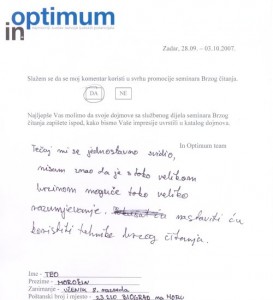 in optimum
Zadar, 28.09. – 03.10.2007.
Slažem se da se moj komentar koristi u svrhu promocije seminara Brzog čitanja.
DA NE
Najljepše Vas molimo da svoje dojmove sa službenog dijela seminara Brzog
čitanja zapišete ispod, kako bismo Vaše impresije uvrstili u katalog dojmova.
In Optimum team
Tečaj mi se jednostavno svidio,
nisam znao da je s toko velikom
brzinom moguće toko veliko
razumijevanje. nastaviti ću
koristiti tehnike brzog čitanja.
Ime - TEO
Prezime - MOROŽIN
Zanimanje - UČENIK 8. razreda
Poštanski broj i mjesto - 23210 BIOGRAD NA MORU